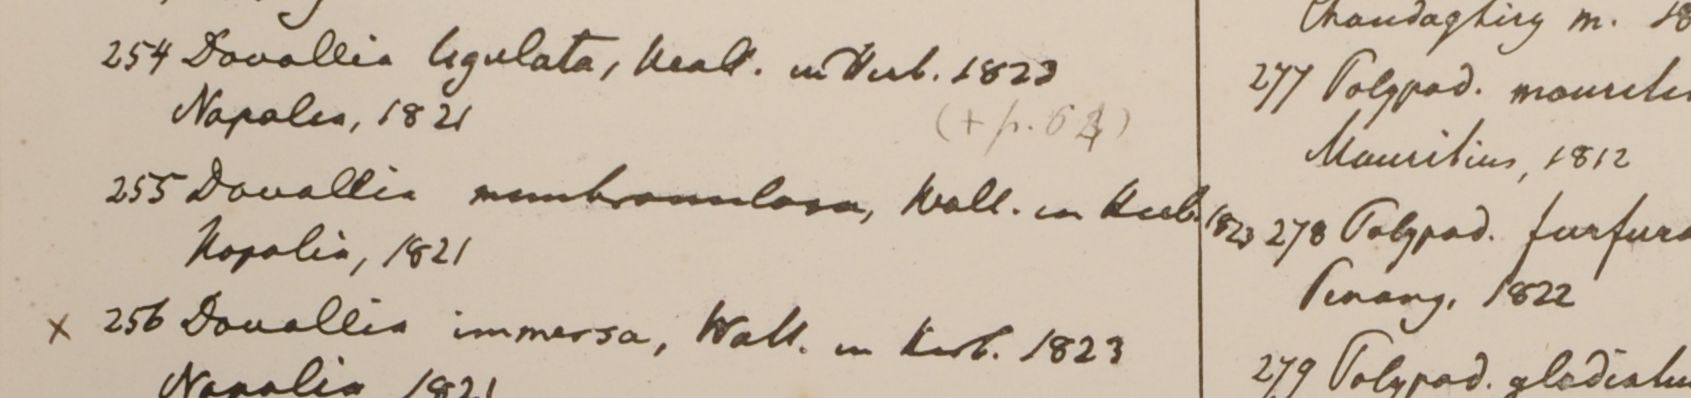 254 Davallia ligulata, Wall. in Herb. 1823
Napalia, 1821
(+ p. 64)
255 Davallia membranulosa, Wall. in Herb. 1823
Napalia, 1821
x 256 Davallia immersa, Wall. in Herb. 1823
Napalia 1821
Chandaghiry m. 18
277 Polypod. mauriti
Mauritius, 1812
278 Polypod. furfura
Penang, 1822
279 Polypod. gladiatu